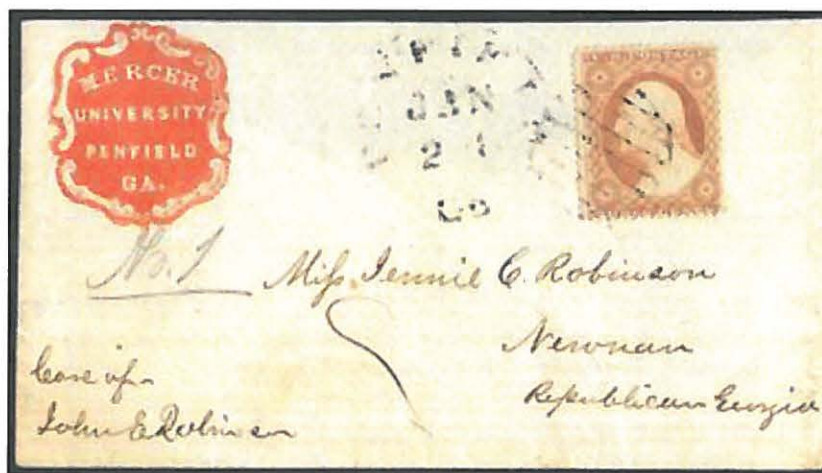 MERCER
UNIVERSITY
PENFIELD
GA.
JAN
2
No. 1
Miss. Jennie C. Robinson
Newnan
Republican Georgia
Care of
John E Robinson